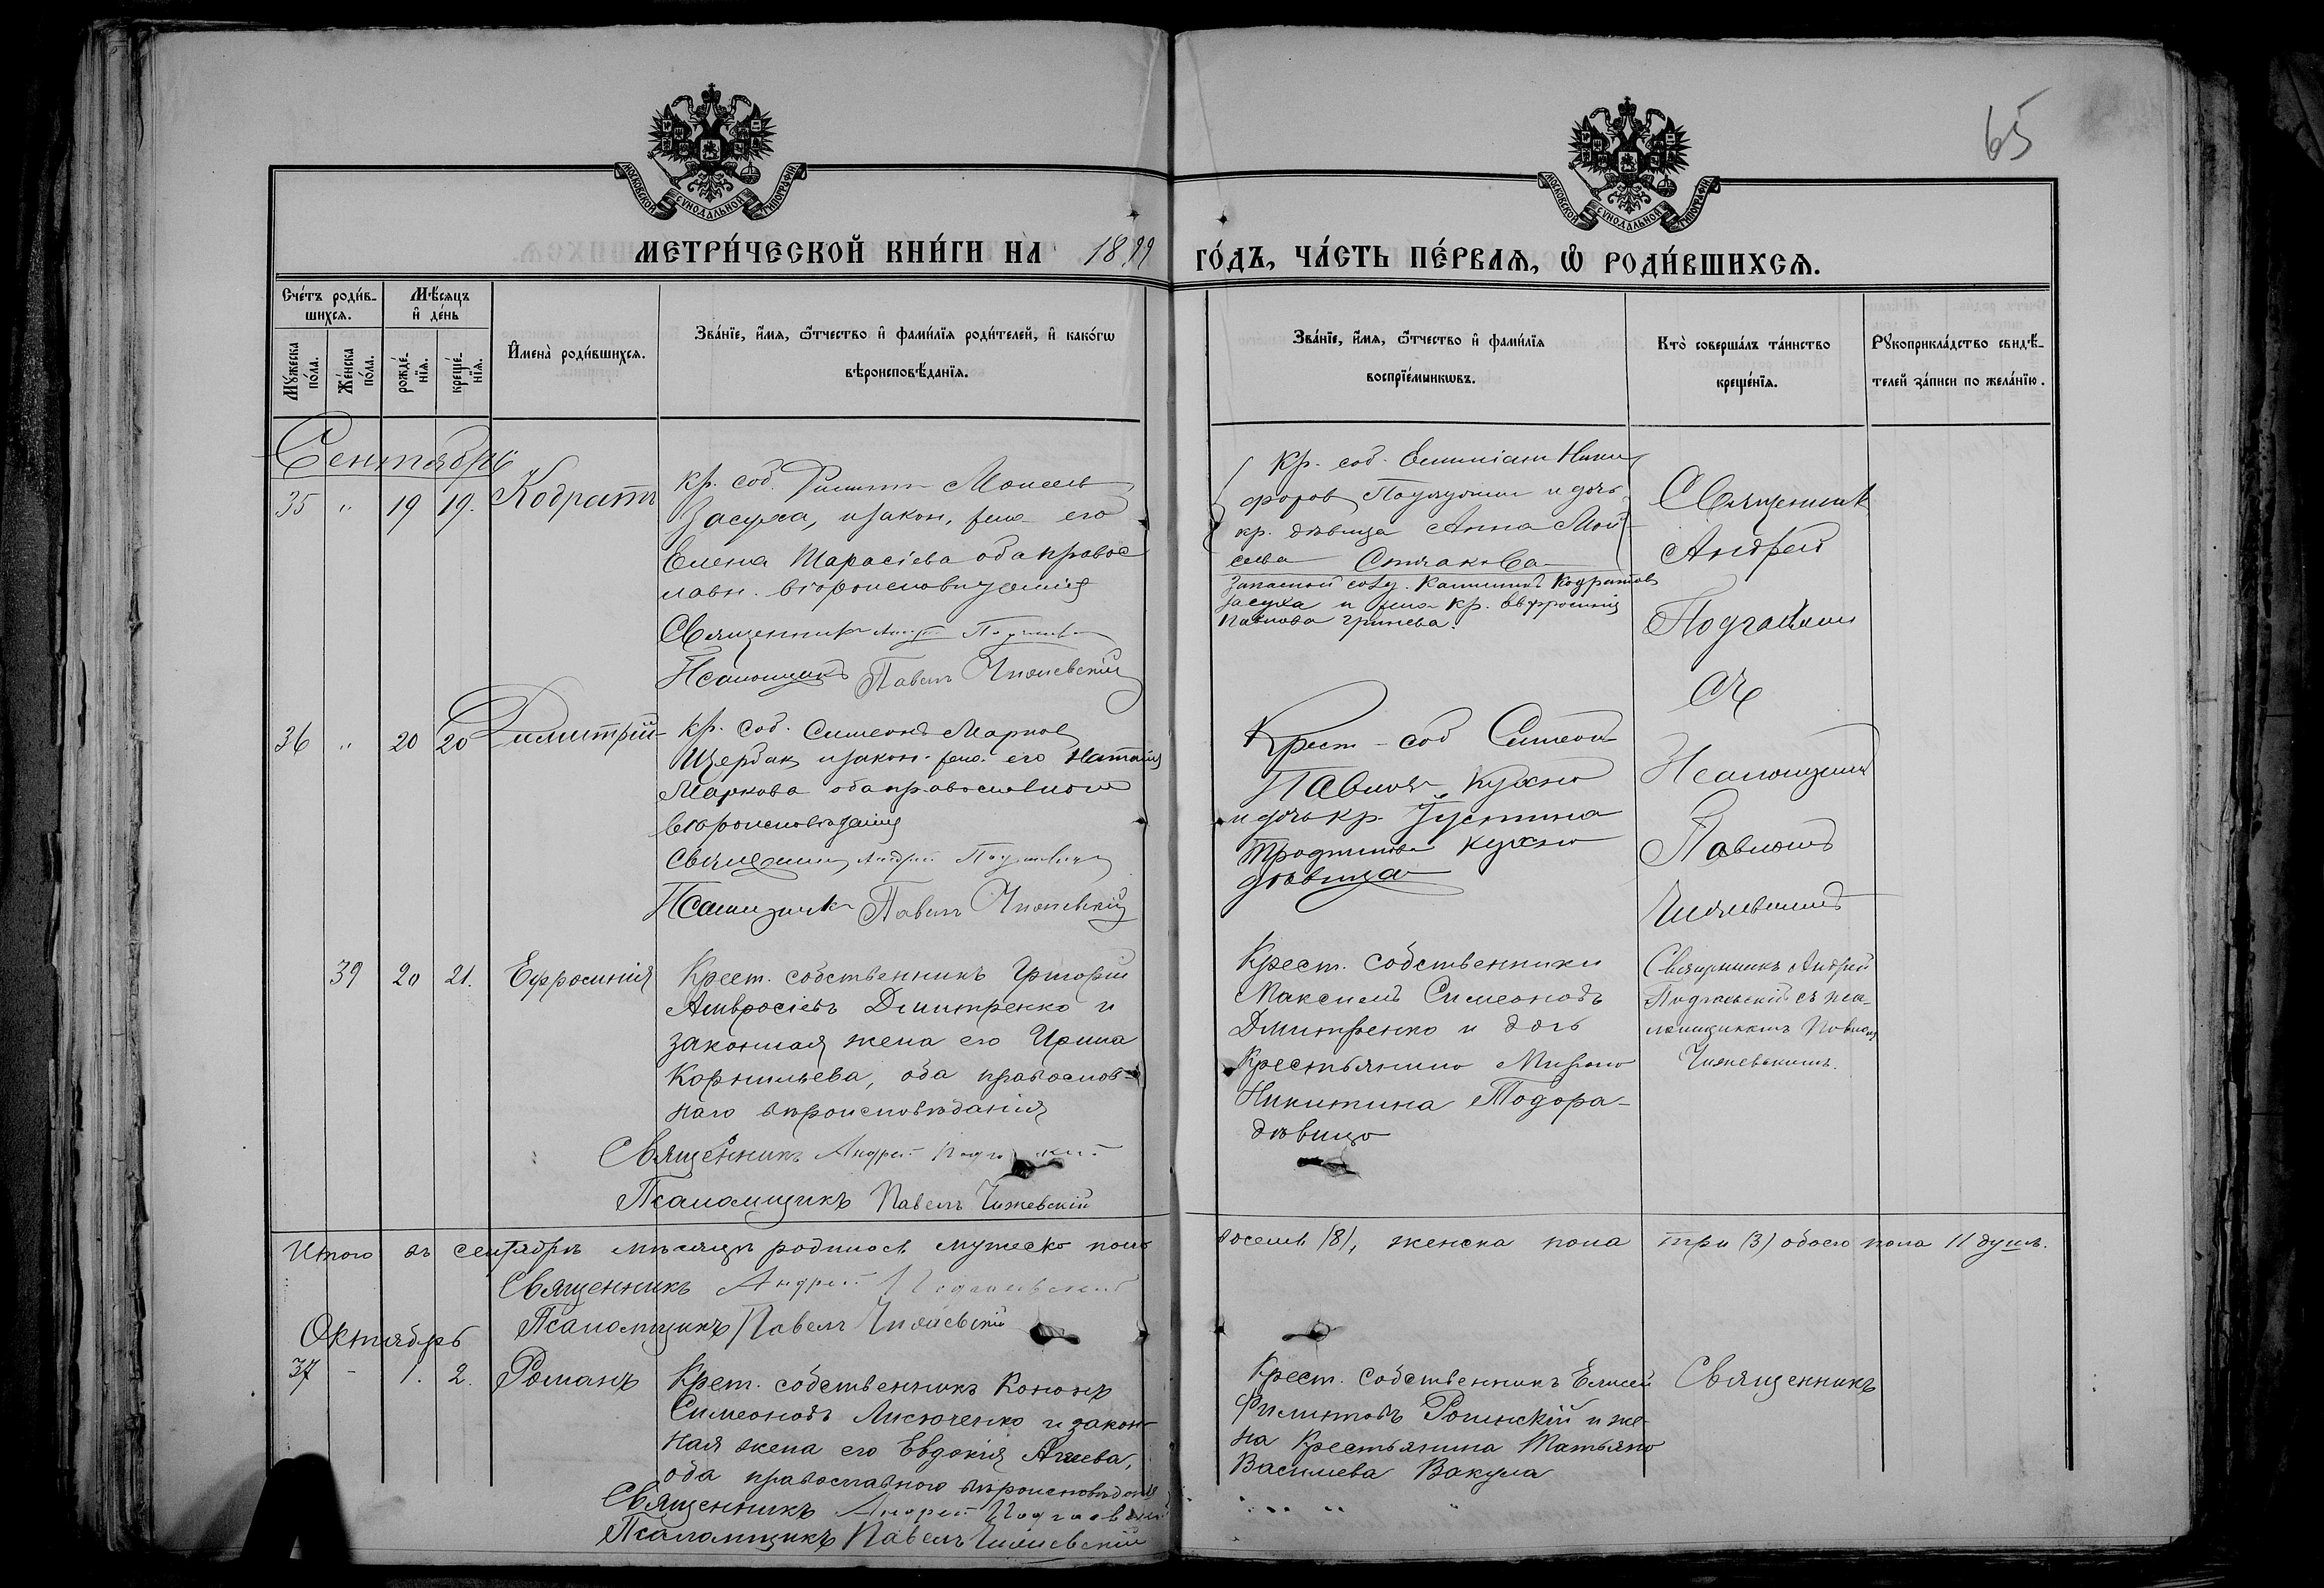 65
МОСКОВСКОЙ СУНОДАЛЬНОЙ ТИПОГРАФІИ
МОСКОВСКОЙ СУНОДАЛЬНОЙ ТИПОГРАФІИ
МЕТРИ́ЧЕСКОЙ КНИ́ГИ НА 1899 ГО́ДЪ, ЧА́СТЬ ПЕ́РВАЯ, Ѡ РОДИ́ВШИХСЯ.
Сче́тъ роди́в-
шихся.
Мѣ́сяцъ
и҆ де́нь
Мꙋ́жеска
по́ла.
Же́нска
по́ла.
рожде́-
нїя.
креще́-
нїя.
И҆мена̀ роди́вшихся.
Зва́нїе, и҆́мя, ѻ҆́тчество и҆ фами́лїя роди́телей, и҆ како́гѡ
вѣроисповѣ́данїя.
Зва́нїе, и҆́мя, ѻ҆́тчество и҆ фами́лїя
воспрїе́мникѡвъ.
Кто̀ соверша́лъ та́инство
креще́нїя.
Рꙋкоприкла́дство свидѣ́-
телей за́писи по жела́нїю.
Сентябрь
35 " 19 19. Кодратъ
кр. соб. Филиппъ Моисеев
Засуха, и закон. жена его
Елена Тарасіева оба правос
лавн. вѣроисповѣданія
Священник Андрей
Псаломщикъ Павелъ Чижевскій
Кр. соб. Ники
форов и дочь
кр. дѣвица Анна Мой
сеева
Запасной солд. Кодратов
Засуха и жена кр. Евфросинія
Павлова Гринева.
Священник
Андрей
съ
Псаломщик
Павломъ
Чижевскимъ
36 " 20 20 Димитрій
кр. соб. Симеонъ Марков
Щербак и закон. жена его Наталія
Маркова оба православного
вѣроисповѣданія
Священник Андрей
Псаломщик Павелъ Чижевскій
Крест. соб Симеон
Павлов Кухно
и дочь кр. Іустина
Кухно
дѣвица
39 20 21. Ефросинія
Крест. собственникъ Григорій
Амвросіевъ Дмитренко и
законная жена его Ирина
Корнильева, оба православ-
наго вѣроисповѣданія
Священникъ Андрей
Псаломщикъ Павелъ Чижевскій
Крест. собственники
Максимъ Симеоновъ
Дмитренко и дочь
Крестьянина
Никитина Тодора-
дѣвица
Священникъ Андрей
съ пса-
ломщикомъ Павломъ
Чижевскимъ.
Итого въ сентябрѣ мѣсяцѣ родилось мужеска пола восемь (8), женска пола три (3) обоего пола 11 душъ.
Священникъ Андрей
Псаломщикъ Павелъ Чижевскій
Октябрь
37 - 1. 2. Романъ
Крест. собственникъ Кононъ
Симеоновъ Лисюченко и закон-
ная жена его Евдокія Агіева,
оба православнаго вѣроисповѣданія
Священникъ Андрей
Псаломщикъ Павелъ Чижевскій
Крест. собственникъ Елисей
Филиповъ Ропинскій и же-
на Крестьянина Татьяна
Василиева Вакула
Священникъ